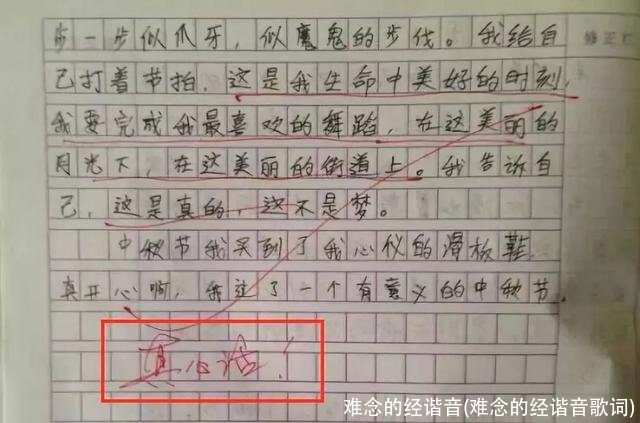 步一步似爪牙，似魔鬼的步伐。我给自
己打着节拍，这是我生命中美好的时刻，
我要完成我最喜欢的舞蹈，在这美丽的
月光下，在这美丽的街道上。我告诉自
己，这是真的，这不是梦。
中秋节我买到了我心仪的滑板鞋
真开心啊，我过了一个有意义的中秋节。
真心话！
难念的经谐音(难念的经谐音歌词)